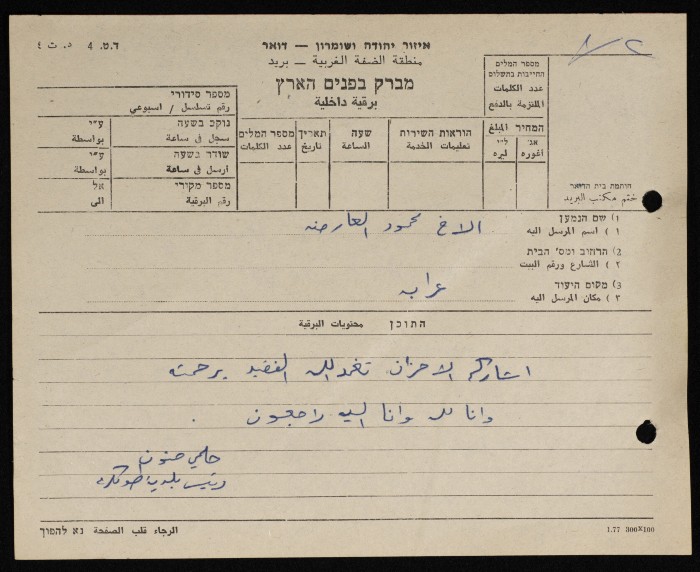 איזור יהודה ושומרון — דואר
ד.ט. 4 د. ت ٤
منطقة الضفة الغربية — بريد
מברק בפנים הארץ
برقية داخلية
מספר המלים
החייבות בתשלום
عدد الكلمات
الملتزمة بالدفع
המחיר المبلغ
אג' ל"י
اغوره ليره
הוראות השירות
تعليمات الخدمة
שעה
الساعة
תאריך
تاريخ
מספר המלים
عدد الكلمات
מספר סידורי
رقم تسلسل / اسبوعي
נוקב בשעה ע"י
سجل في ساعة بواسطة
שודר בשעה ע"י
ارسل في ساعة بواسطة
מספר מקורי אל
رقم البرقية الى
חותמת בית הדואר
ختم مكتب البريد
1) שם הנמען
١ ) اسم المرسل اليه
الاخ محمود العارضه
2) הרחוב ומס' הבית
٢ ) الشارع ورقم البيت
3) מקום היעוד
٣ ) مكان المرسل اليه
عرابه
התוכן محتويات البرقية
اشاركم الاحزان تغمد الله الفقيد برحمته
وانا لله وانا اليه راجعون
حلمي حنون
رئيس بلدية طولكرم
الرجاء قلب الصفحة נא להפוך
1.77 300×100